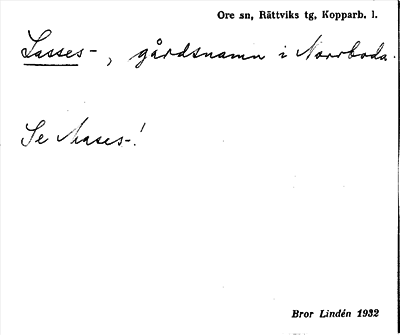 Ore sn, Rättviks tg, Kopparb. l.
Lasses-, gårdsnamn i Norrboda.
Se Mases-!
Bror Lindén 1932